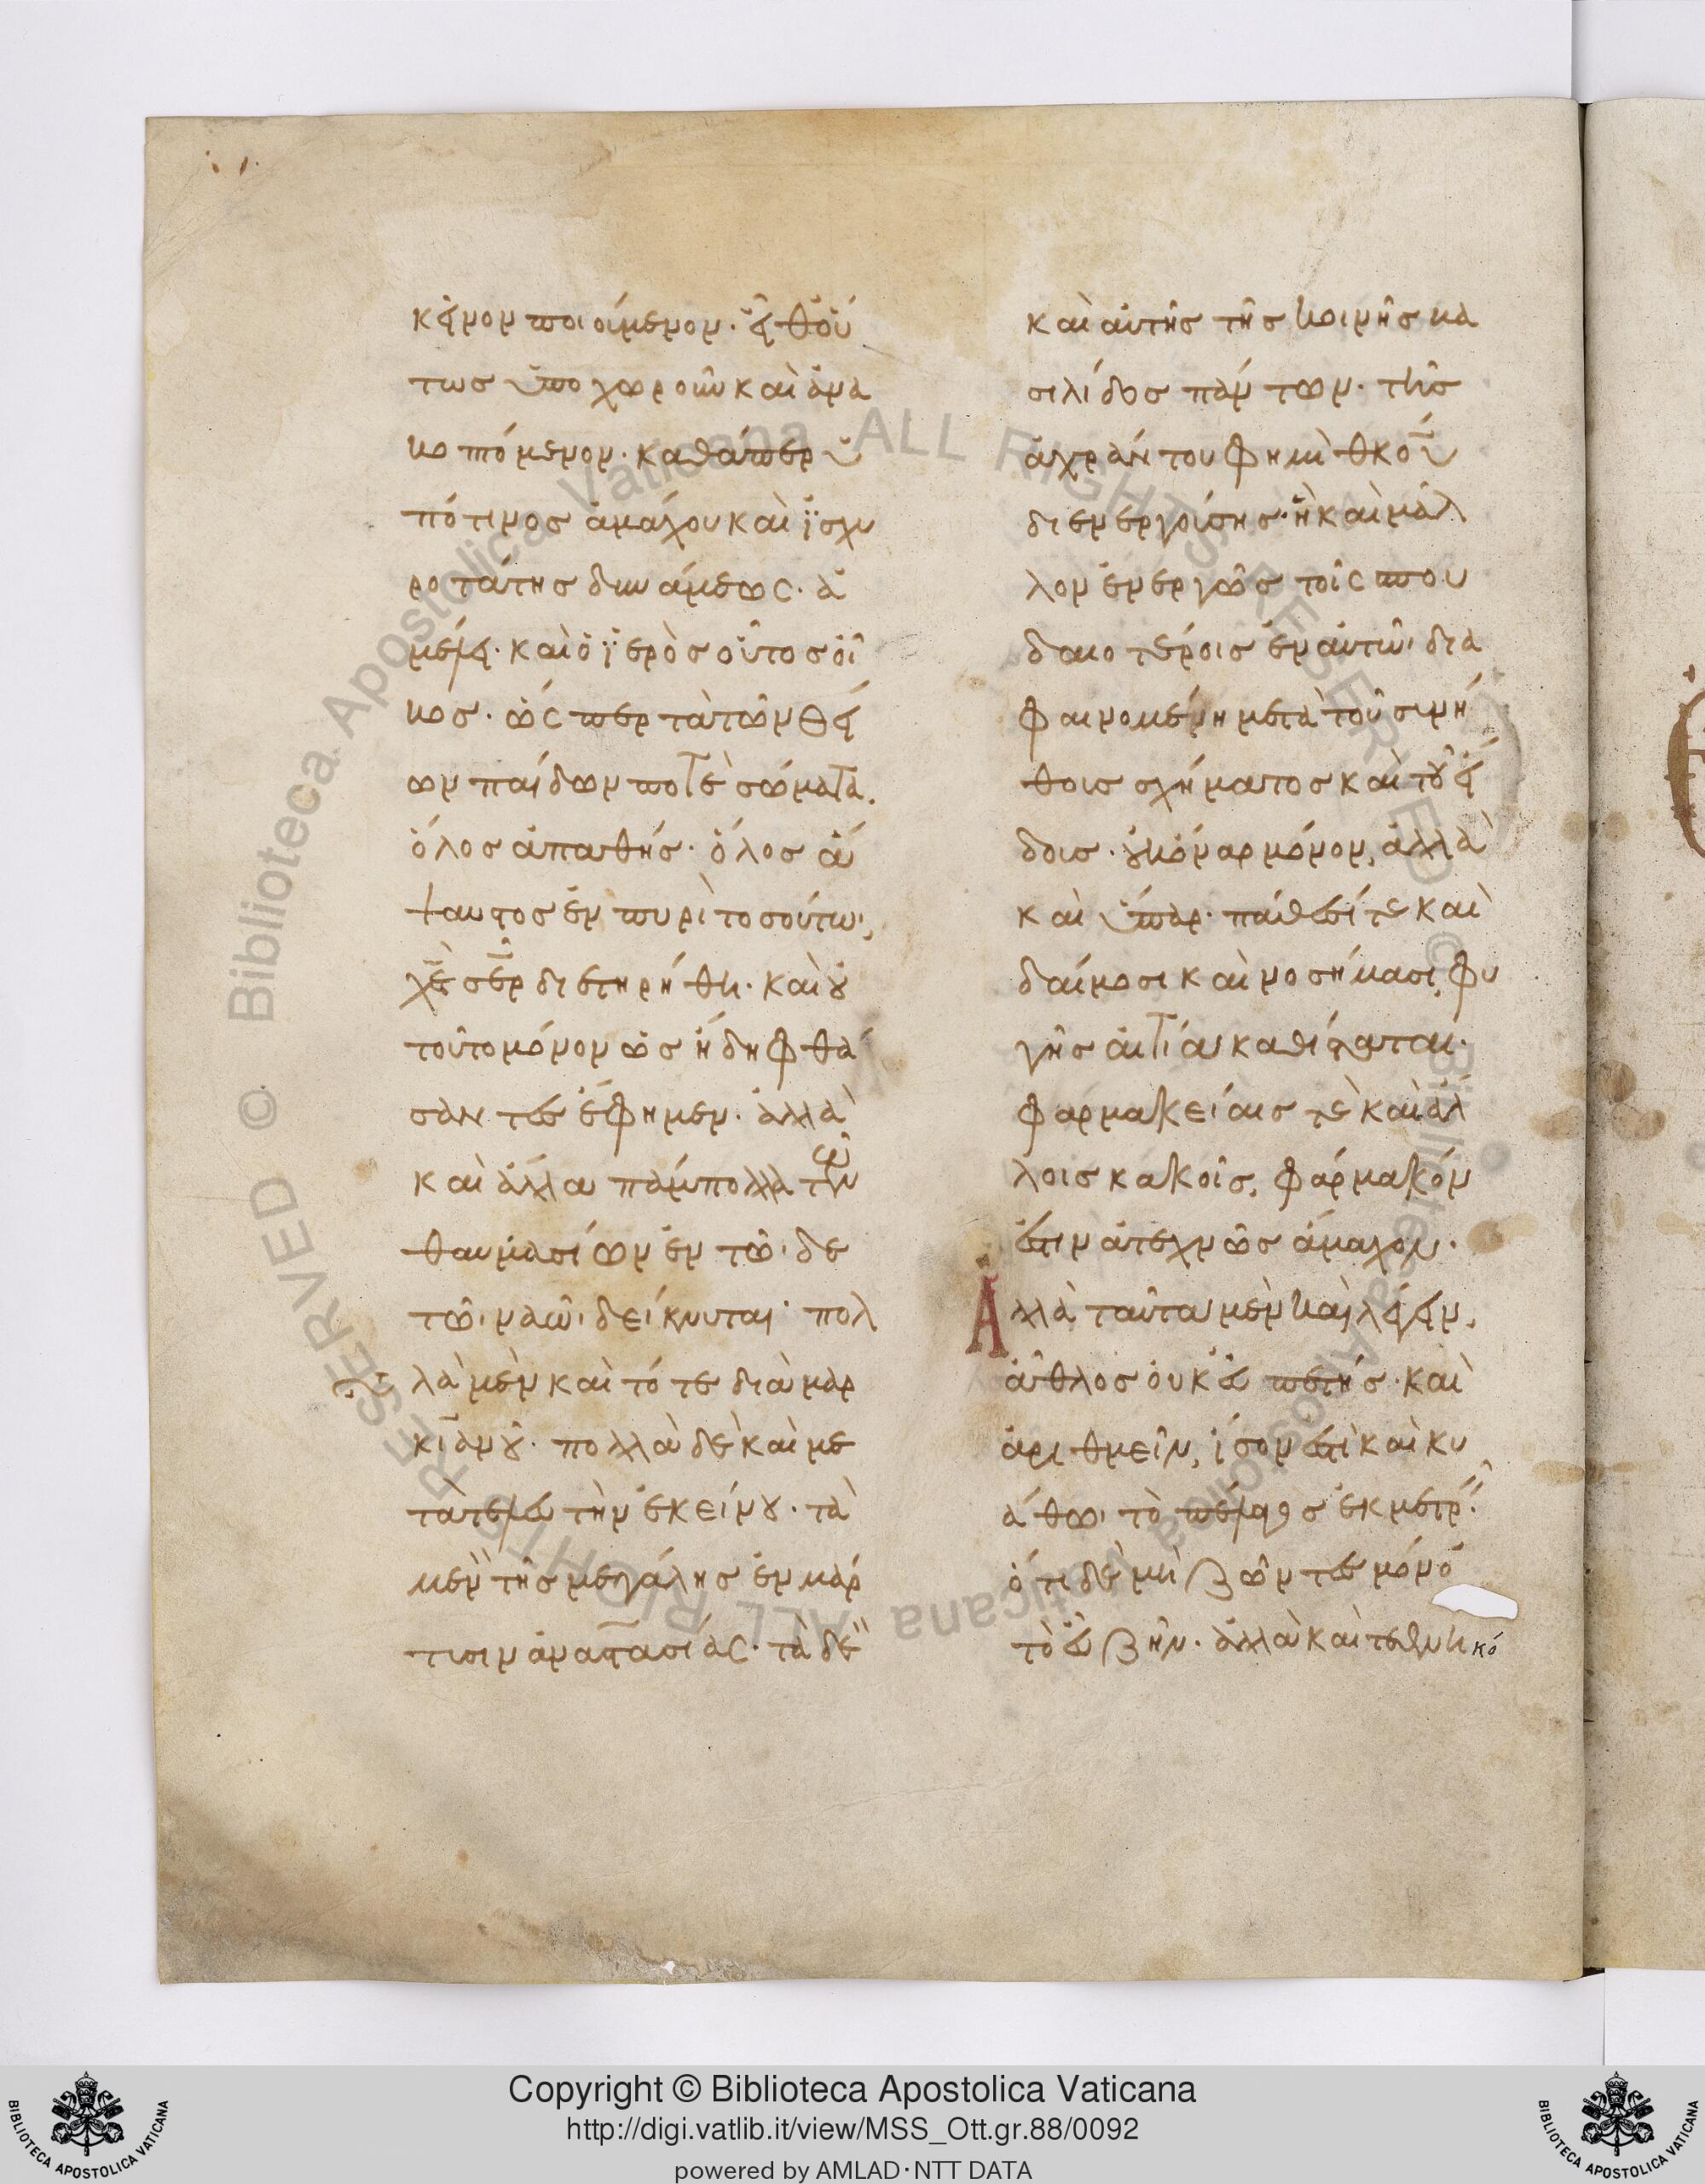 κεῖνον ποιούμενον· εἶθ' οὕ
τως ὑποχωροῦν καὶ ἀνα
κοπτόμενον· καθάπερ ὑ
πό τινος ἀμάχου καὶ ἰσχυ
ροτάτης δυνάμεως· ἀ
μέλει· καὶ ὁ ἱερὸς οὗτος οἶ
κος· ὥσπερ τὰ τῶν θεί
ων παίδων ποτὲ σώματα,
ὅλος ἀπαθής· ὅλος ἄ
ψαυστος ἐν πυρὶ τοσούτωι,
χεῖ σερ διετηρήθη· καὶ οὐ
τοῦτο μόνον ὡς ἤδη φθά
σαντες ἔφημεν· ἀλλὰ
καὶ ἄλλα πάμπολλα τῶν
θαυμασίων ἐν τῶι δε
τῶι ναῶι δείκνυται· πολ
λὰ μὲν καὶ τότε διὰ μαρ
κιανοῦ· πολλὰ δὲ καὶ με
τὰ τελευτὴν ἐκείνου· τὰ
μὲν τῆς μεγάλης ἐν μάρ
τυσιν ἀναστασίας· τὰ δὲ
καὶ αὐτῆς τῆς κοινῆς βα
σιλίδος πάντων· τῆς
ἀχράντου φημὶ θκου
διενεργούσης· ἣ καὶ μᾶλ
λον ἐνεργῶς τοῖς σπου
δαιοτέροις ἐν αὐτῶι δια
φαινομένη μετὰ τοῦ συνή
θους σχήματος καὶ τοῦ εἴ
δους· οὐκ ὄναρ μόνον, ἀλλὰ
καὶ ὕπαρ· πάθεσί τε καὶ
δαίμοσι καὶ νοσήμασι, φυ
γῆς αἰτία καθίσταται·
φαρμακείαις τε καὶ ἄλ
λοις κακοῖς, φάρμακόν
ἐστιν ἀτεχνῶς ἄμαχον·
Ἀλλὰ ταῦτα μὲν καὶ λέγειν,
ἆθλος οὐκ εὐπετής· καὶ
ἀριθμεῖν, ἴσον ἐστὶ καὶ κυ
άθωι τὸ πέλαγος ἐκμετρεῖν·
ὅτι δὲ μὴ ζῶντες μόνο
τὸ εὖ ζῆν· ἀλλὰ καὶ τεθνηκό